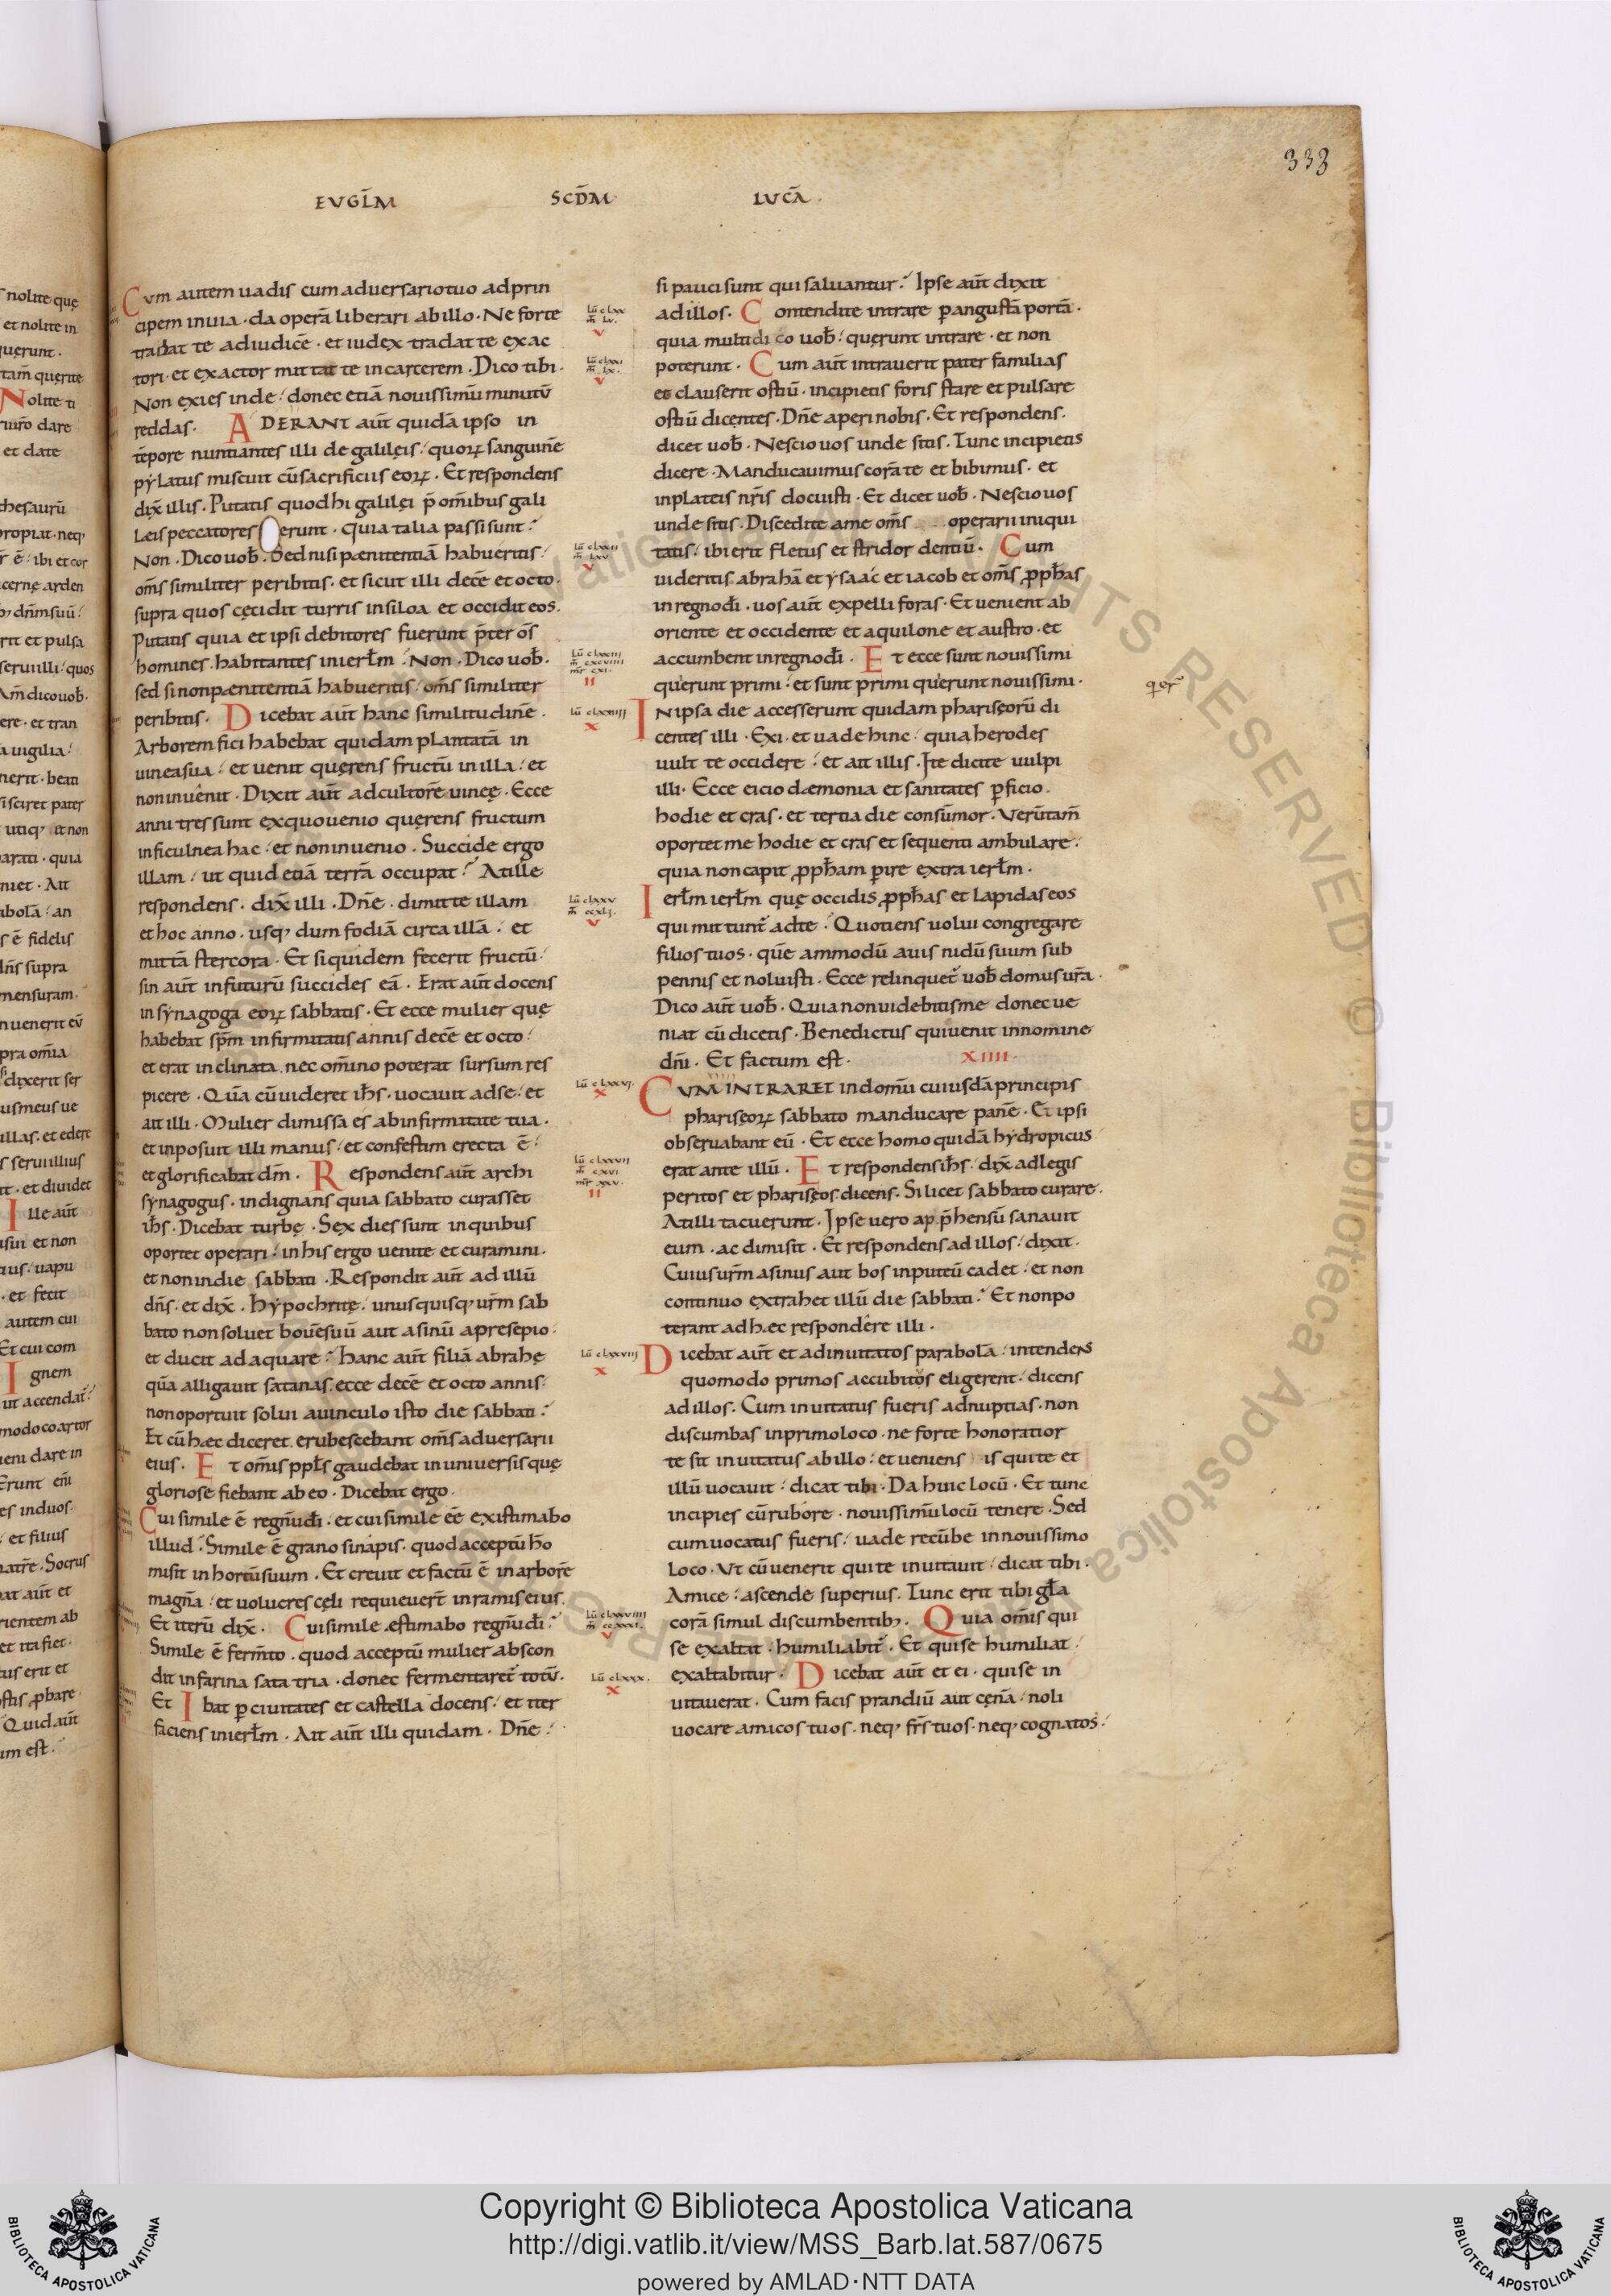 333
EVGL̅M SCD̅M LVCA̅.
Cum autem uadis cum aduersario tuo ad prin
cipem in uia · da opera̅ liberari ab illo · Ne forte
tradat te ad iudice̅ · et iudex tradat te exac
tori · et exactor mittat te in carcerem · Dico tibi ·
Non exies inde · donec etia̅ nouissimu̅ minutu̅
reddas. ADERANT aut̅ quida̅ ipso in
te̅pore nuntiantes illi de galilęis · quoꝝ sanguine̅
pylatus miscuit cu̅ sacrificiis eoꝝ · Et respondens
dix̅ illis · Putatis quod hi galilęi p̅ om̅ibus gali
leis peccatores erunt · quia talia passi sunt ?
Non · Dico uob̅ · Sed nisi pænitentia̅ habueritis ·
om̅s similiter peribitis · et sicut illi dece̅ et octo ·
supra quos cęcidit turris in siloa et occidit eos.
Putatis quia et ipsi debitores fuerunt p̅ter o̅s
homines · habitantes in ierl̅m ? Non · Dico uob̅ ·
sed si non pænitentia̅ habueritis · om̅s similiter
peribitis · Dicebat aut̅ hanc similitudine̅ ·
Arborem fici habebat quidam plantata̅ in
uinea sua · et uenit quęrens fructu̅ in illa · et
non inuenit · Dixit aut̅ ad cultore̅ uineę · Ecce
anni tres sunt ex quo uenio quęrens fructum
in ficulnea hac · et non inuenio · Succide ergo
illam · ut quid etia̅ terra̅ occupat ? At ille
respondens · dix̅ illi · Dn̅e · dimitte illam
et hoc anno · usq; dum fodia̅ circa illa̅ · et
mitta̅ stercora · Et siquidem fecerit fructu̅ ·
sin aut̅ in futuru̅ succides ea̅ · Erat aut̅ docens
in synagoga eoꝝ sabbatis · Et ecce mulier quę
habebat sp̅m infirmitatis annis dece̅ et octo ·
et erat inclinata nec om̅ino poterat sursum res
picere · Qua̅ cu̅ uideret ih̅s · uocauit ad se · et
ait illi · Mulier dimissa es ab infirmitate tua ·
et inposuit illi manus · et confestim erecta e̅ ·
et glorificabat dm̅ · Respondens aut̅ archi
synagogus · indignans quia sabbato curasset
ih̅s · Dicebat turbę · Sex dies sunt in quibus
oportet operari · in his ergo uenite et curamini ·
et non in die sabbati · Respondit aut̅ ad illu̅
dn̅s · et dix̅ · Hypochritę · unusquisq; ur̅m sab
bato non soluet boue̅ suu̅ aut asinu̅ a presepio ·
et ducit adaquare ? hanc aut̅ filia̅ abrahę
qua̅ alligauit satanas ecce dece̅ et octo annis ·
non oportuit solui a uinculo isto die sabbati ?
Et cu̅ hæc diceret erubescebant om̅s aduersarii
eius · Et om̅is ppl̅s gaudebat in uniuersis quę
gloriose fiebant ab eo · Dicebat ergo ·
Cui simile e̅ regnu̅ di̅ · et cui simile ee̅ existimabo
illud · Simile e̅ grano sinapis · quod acceptu̅ ho̅
misit in hortu̅ suum · Et creuit et factu̅ e̅ in arbore̅
magna̅ · et uolucres cęli requieuer̅t in ramis eius.
Et iteru̅ dix̅ · Cui simile estimabo regnu̅ di̅ ·
Simile e̅ ferm̅to · quod acceptu̅ mulier abscon
dit in farina sata tria · donec fermentaret̅ totu̅ ·
Et Ibat p ciuitates et castella docens · et iter
faciens in ierl̅m · Ait aut̅ illi quidam · Dn̅e ·
Lu̅ clxx
m̅ lv.
v
Lu̅ clxxi
m̅ lx.
v
Lu̅ clxxii
m̅ lxv
v
Lu̅ clxxiii
m̅ cxcviiii
mr̅ cxi.
II
Lu̅ clxxiiii
x
Lu̅ clxxv
m̅ ccxli.
v
Lu̅ clxxvi.
x
Lu̅ clxxvii
m̅ cxvi
mr̅ xxv.
II
Lu̅ clxxviii
x
Lu̅ clxxviiii
m̅ ccxxxi.
v
Lu̅ clxxx.
x
si pauci sunt qui saluantur ? Ipse aut̅ dixit
ad illos · Contendite intrare p angusta̅ porta̅ ·
quia multi dico uob̅ · quęrunt intrare · et non
poterunt · Cum aut̅ intrauerit pater familias
et clauserit ostiu̅ · incipietis foris stare et pulsare
ostiu̅ dicentes · Dn̅e aperi nobis · Et respondens ·
dicet uob̅ · Nescio uos unde sitis · Tunc incipietis
dicere · Manducauimus cora̅ te et bibimus · et
in plateis nr̅is docuisti · Et dicet uob̅ · Nescio uos
unde sitis · Discedite a me om̅s operarii iniqui
tatis · ibi erit fletus et stridor dentiu̅ · Cum
uideritis abraha̅ et ysaac et iacob et om̅s pph̅as
in regno di̅ · uos aut̅ expelli foras · Et uenient ab
oriente et occidente et aquilone et austro · et
accumbent in regno di̅ · Et ecce sunt nouissimi
qui erunt primi · et sunt primi qui erunt nouissimi ·
In ipsa die accesserunt quidam phariseoru̅ di
centes illi · Exi · et uade hinc · quia herodes
uult te occidere · et ait illis · Ite dicite uulpi
illi · Ecce eicio dæmonia et sanitates pficio ·
hodie et cras · et tertia die consu̅mor · Veru̅tam̅
oportet me hodie et cras et sequenti ambulare ·
quia non capit pph̅am pire extra ierl̅m ·
Ierl̅m ierl̅m quę occidis pph̅as et lapidas eos
qui mittunt̅ ad te · Quotiens uolui congregare
filios tuos · que̅ ammodu̅ auis nidu̅ suum sub
pennis et noluisti · Ecce relinquet̅ uob̅ domus ur̅a ·
Dico aut̅ uob̅ · Quia non uidebitis me donec ue
niat cu̅ dicetis · Benedictus qui uenit in nomine
dn̅i · Et factum est · XIIII.
CVM INTRARET in domu̅ cuiusda̅ principis
phariseoꝝ sabbato manducare pane̅ · Et ipsi
obseruabant eu̅ · Et ecce homo quida̅ hydropicus
erat ante illu̅ · Et respondens ih̅s · dix̅ ad legis
peritos et phariseos dicens · Si licet sabbato curare ·
At illi tacuerunt · Ipse uero ap p̅hensu̅ sanauit
eum · ac dimisit · Et respondens ad illos · dixit ·
Cuius ur̅m asinus aut bos in puteu̅ cadet · et non
continuo extrahet illu̅ die sabbati ? Et non po
terant ad hæc respondere illi ·
Dicebat aut̅ et ad inuitatos parabola̅ · intendens
quomodo primos accubitos eligerent · dicens
ad illos · Cum inuitatus fueris ad nuptias · non
discumbas in primo loco · ne forte honoratior
te sit inuitatus ab illo · et ueniens is qui te et
illu̅ uocauit · dicat tibi · Da huic locu̅ · Et tunc
incipies cu̅ rubore · nouissimu̅ locu̅ tenere · Sed
cum uocatus fueris · uade recu̅be in nouissimo
loco · Vt cu̅ uenerit qui te inuitauit · dicat tibi ·
Amice · ascende superius · Tunc erit tibi gl̅a
cora̅ simul discumbentib; · Quia om̅is qui
se exaltat · humiliabit̅ · Et qui se humiliat ·
exaltabitur · Dicebat aut̅ et ei · qui se in
uitauerat · Cum facis prandiu̅ aut cena̅ · noli
uocare amicos tuos · neq; fr̅s tuos · neq; cognatos ·
Copyright © Biblioteca Apostolica Vaticana
http://digi.vatlib.it/view/MSS_Barb.lat.587/0675
powered by AMLAD·NTT DATA
BIBLIOTECA APOSTOLICA VATICANA
BIBLIOTECA APOSTOLICA VATICANA